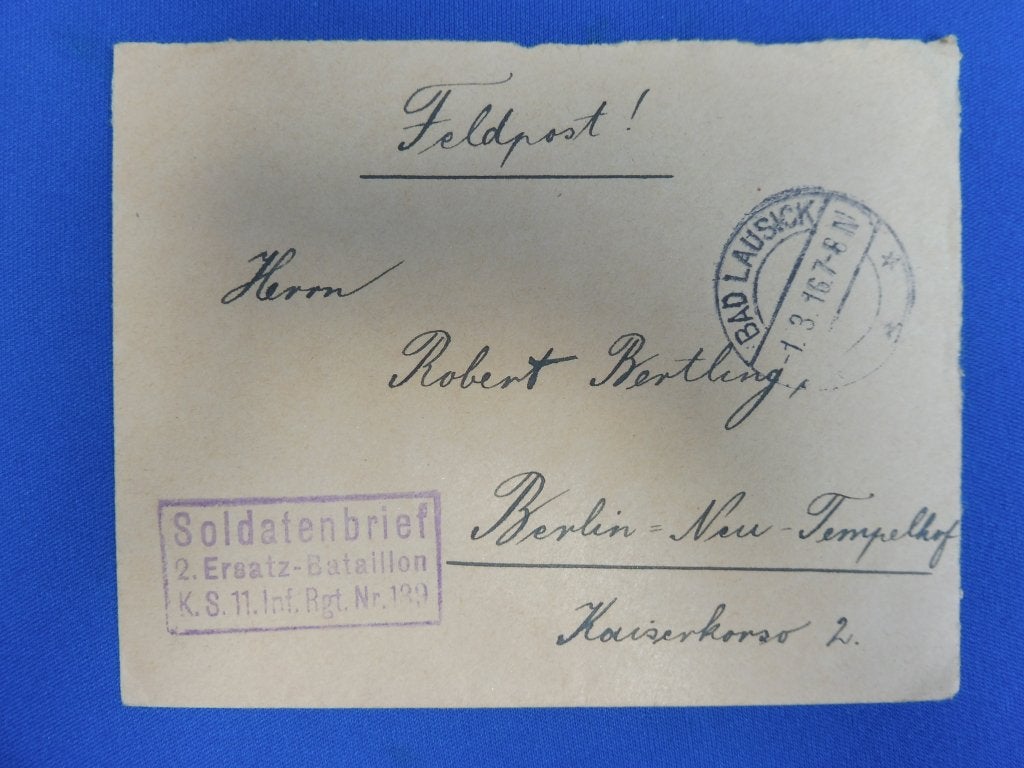 Feldpost!
BAD LAUSICK
-1.3.16.7-8 N
Herrn
Robert Bertling,
Berlin=Neu-Tempelhof
Kaiserkorso 2.
Soldatenbrief
2. Ersatz-Bataillon
K. S. 11. Inf. Rgt. Nr. 139